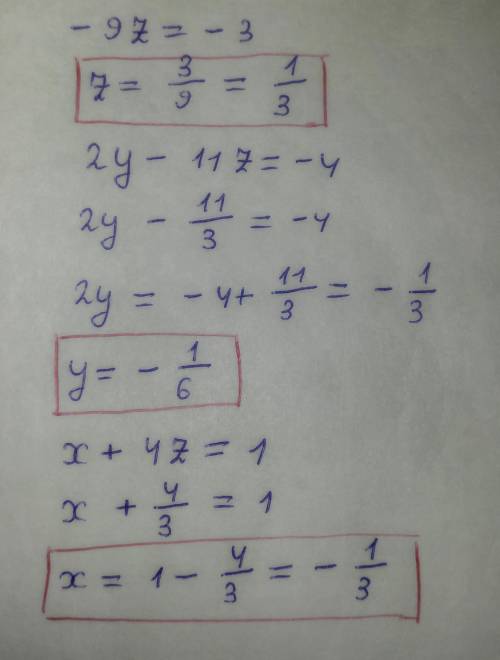 -9z = -3
z = 3/9 = 1/3
2y - 11z = -4
2y - 11/3 = -4
2y = -4 + 11/3 = -1/3
y = -1/6
x + 4z = 1
x + 4/3 = 1
x = 1 - 4/3 = -1/3